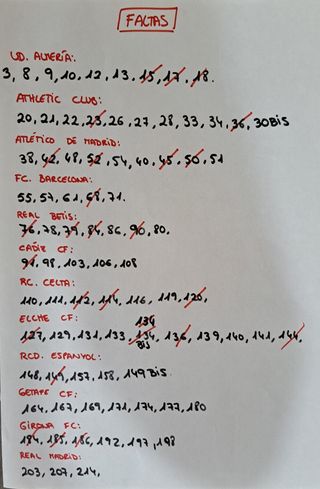 FALTAS
UD. ALMERÍA:
3, 8, 9, 10, 12, 13, 15, 17, 18.
ATHLETIC CLUB:
20, 21, 22, 23, 26, 27, 28, 33, 34, 36, 30BIS
ATLÉTICO DE MADRID:
38, 42, 48, 52, 54, 40, 45, 50, 51
FC. BARCELONA:
55, 57, 61, 68, 71.
REAL BETIS:
76, 78, 79, 84, 86, 90, 80.
CADIZ CF:
91, 98, 103, 106, 108
RC. CELTA:
110, 111, 112, 114, 116, 119, 120,
ELCHE CF:
134
127, 129, 131, 133, 134, 136, 139, 140, 141, 144,
BIS
RCD. ESPANYOL:
148, 149, 157, 158, 149BIS
GETAFE CF:
164, 167, 169, 171, 174, 177, 180
GIRONA FC:
184, 185, 186, 192, 197, 198
REAL MADRID:
203, 207, 214,